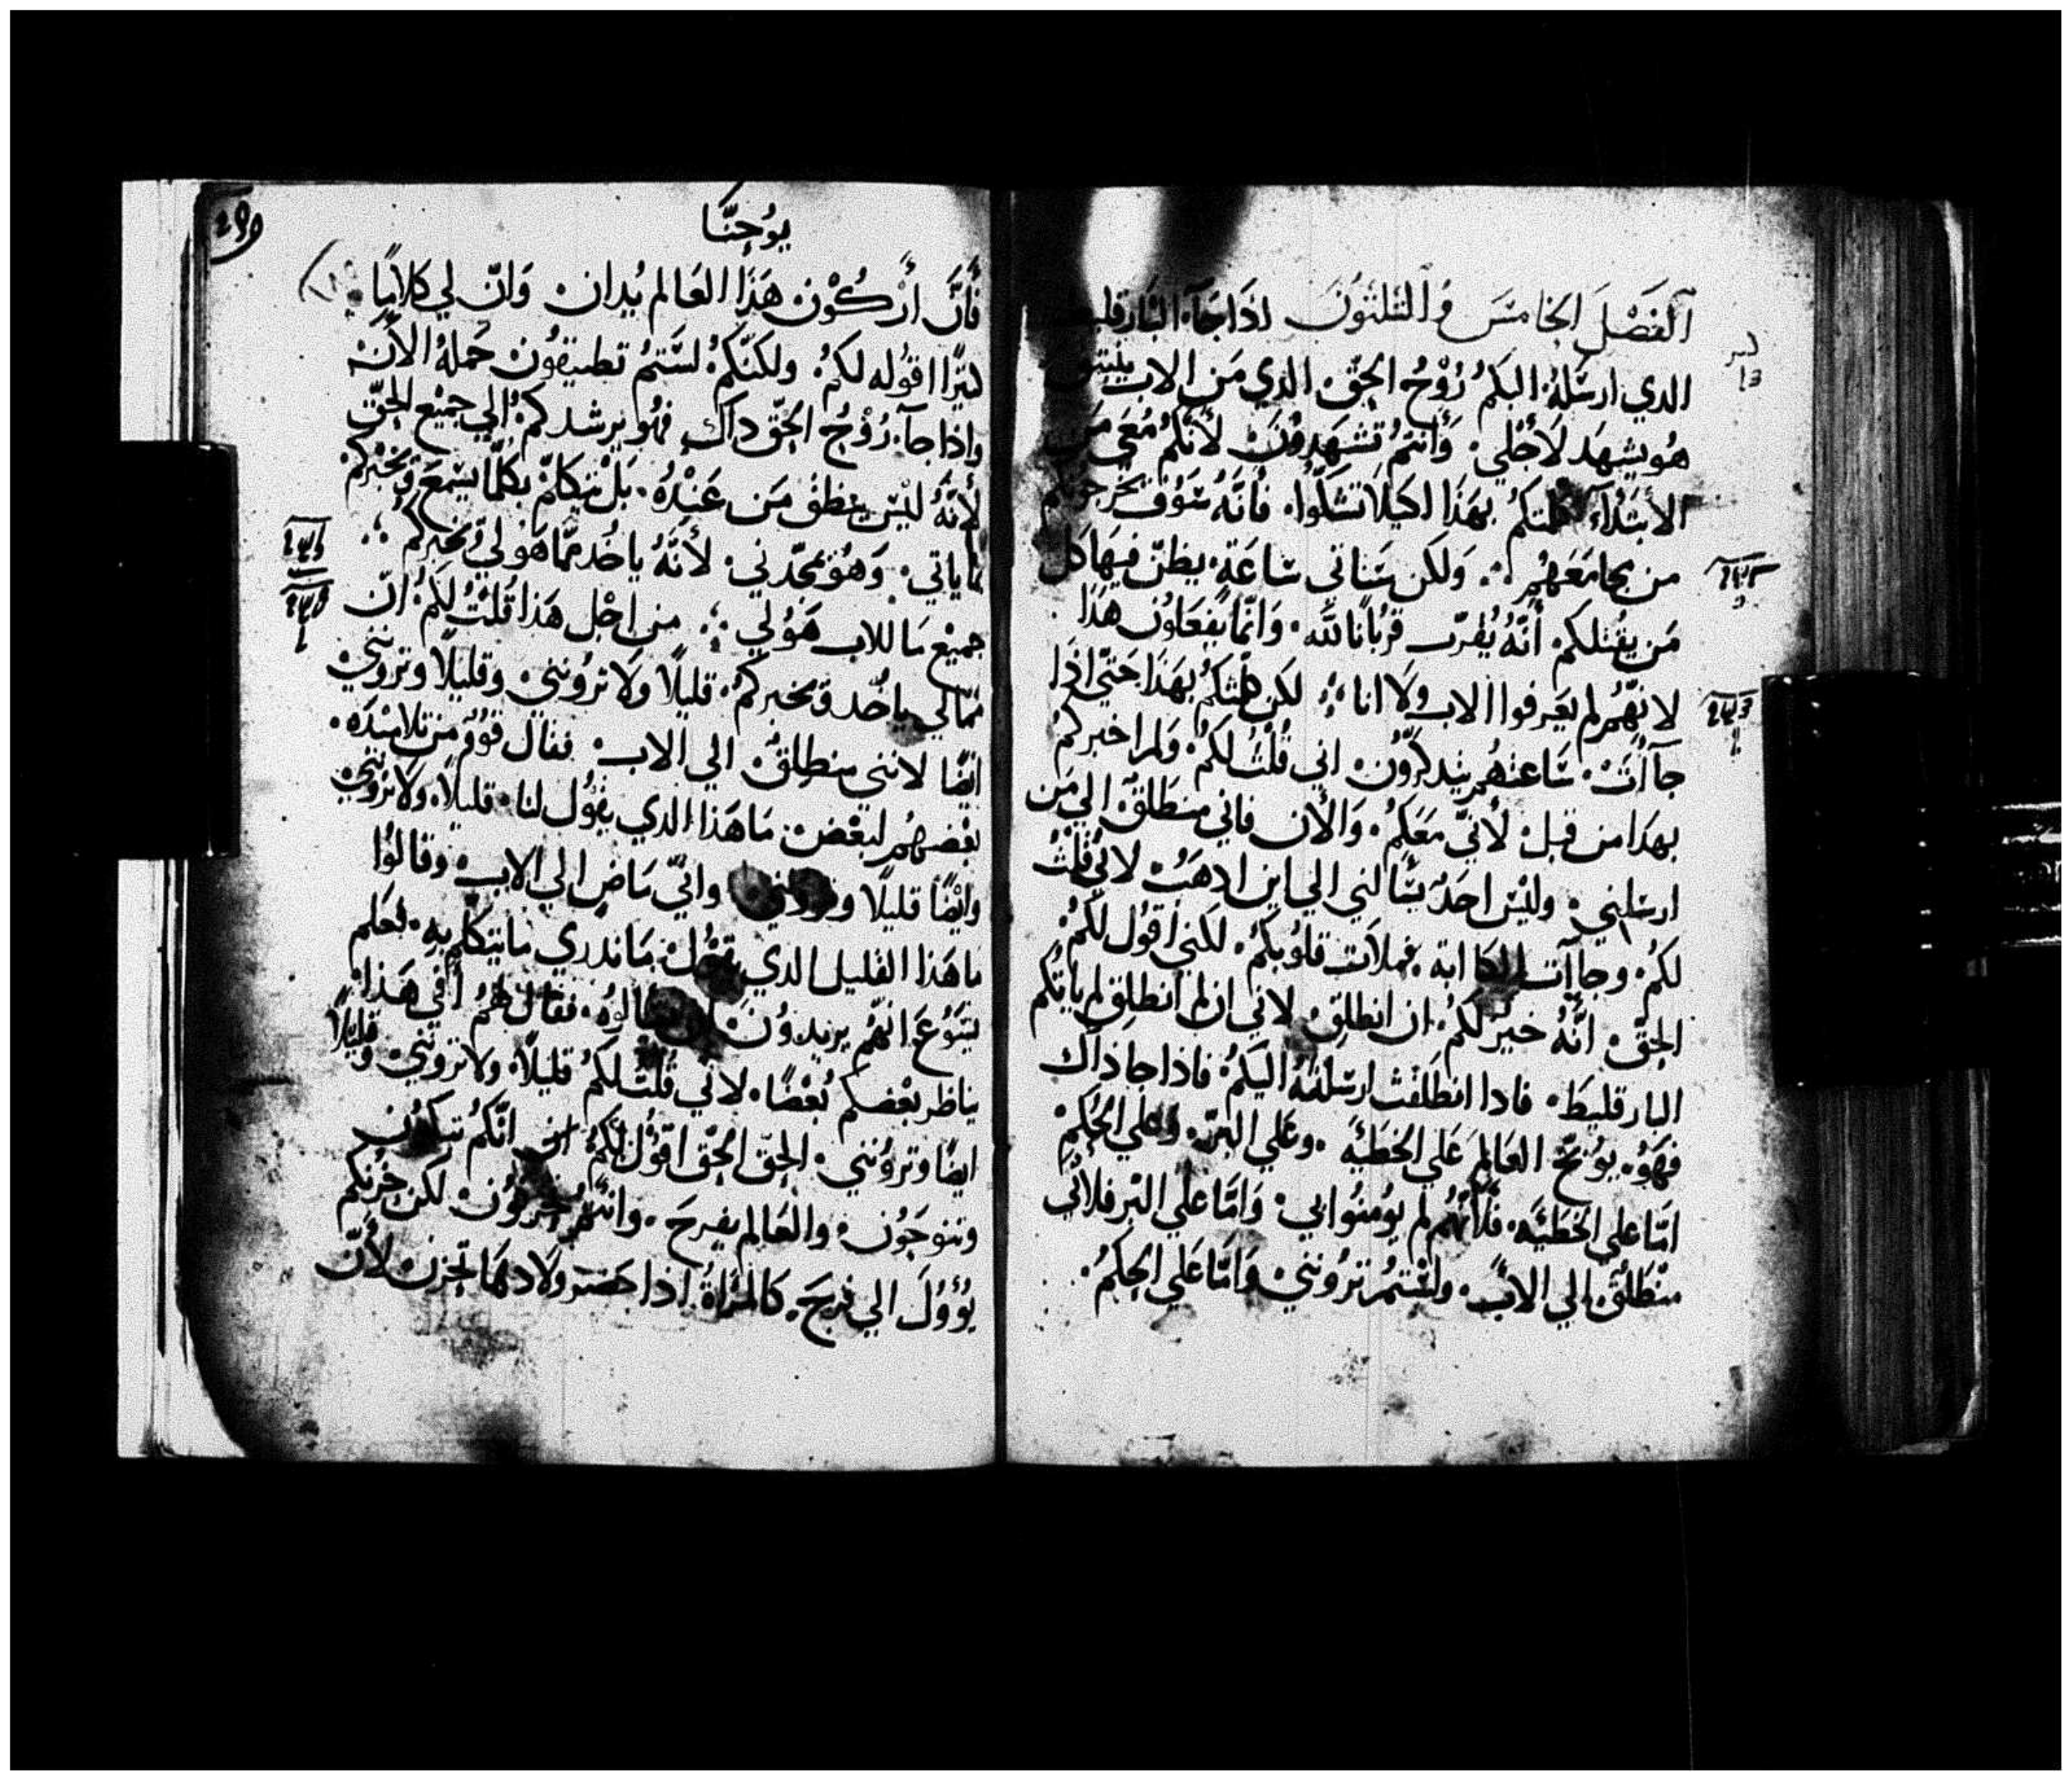 الفصل الخامس والثلثون اذا جآ البارقليط
الدي ارسله اليكم روح الحق الدي من الاب ينبثق
هو يشهد لاجلي وانتم تشهدون لانكم معي من
الابتدآ كلمتكم بهذا لكيلا تشكوا فانه سوف يخرجونكم
من مجامعهم ولكن ستاتي ساعة يظن فيها كل
من يقتلكم انه يقرب قربانا لله وانما يفعلون هذا
لانهم لم يعرفوا الاب ولا انا لكن كلمتكم بهذا حتي اذا
جآات ساعتهم يتدكرون اني قلت لكم ولم اخبركم
بهدا من قبل لأني معكم والأن فاني منطلق الي من
ارسلني وليس احد يسالني الي اين ادهب لاني قلت
لكم وجاآت الكاابة فملات قلوبكم لكني اقول لكم
الحق انه خير لكم ان انطلق لاني ان لم انطلق لم ياتكم
البارقليط فادا انطلقت ارسلته اليكم فاذا جا ذاك
فهو يوبخ العالم علي الخطئة وعلي البر وعلي الحكم
امّا علي الخطئه فلأنهم لم يومنوا بي وامّا علي البر فلاني
منطلق الي الأب ولستم تروننى وامّا علي الحكم
يوحنا
فأن أركون هذا العالم يدان وان لي كلاما
كثيرًا اقوله لكم ولكنكم لستم تطيقون حمله الأن
واذا جآ روح الحق داك فهو يرشدكم الي جميع الحق
لأنه ليس ينطق من عنده بل يتكلم بكلما يسمع ويخبركم
بما ياتي وهو يمجدني لأنه ياخد مما هو لي ويخبركم
جميع ما للاب هو لي من اجل هذا قلت لكم ان
مما لي ياخد ويخبركم قليلاً ولا ترونني وقليلا وترونني
ايضًا لانني منطلق الي الاب فقال قوم من تلاميذه
بعضهم لبعض ما هذا الدي يقول لنا قليلاً ولا ترونني
وايضًا قليلا وترونني واني ماض الي الاب وقالوا
ما هذا القليل الدي يقول ما ندري ما يتكلم به فعلم
يسوع انهم يريدون ان يسالوه فقال لهم أفي هذا
يناظر بعضكم بعضًا لاني قلت لكم قليلاً ولا ترونني وقليلاً
ايضًا وترونني الحق الحق اقول لكم انكم تبكون
وتنوحون والعالم يفرح وانتم تحزنون لكن حزنكم
يؤول الي فرح كالمراة اذا حضر ولادها تحزن لأن